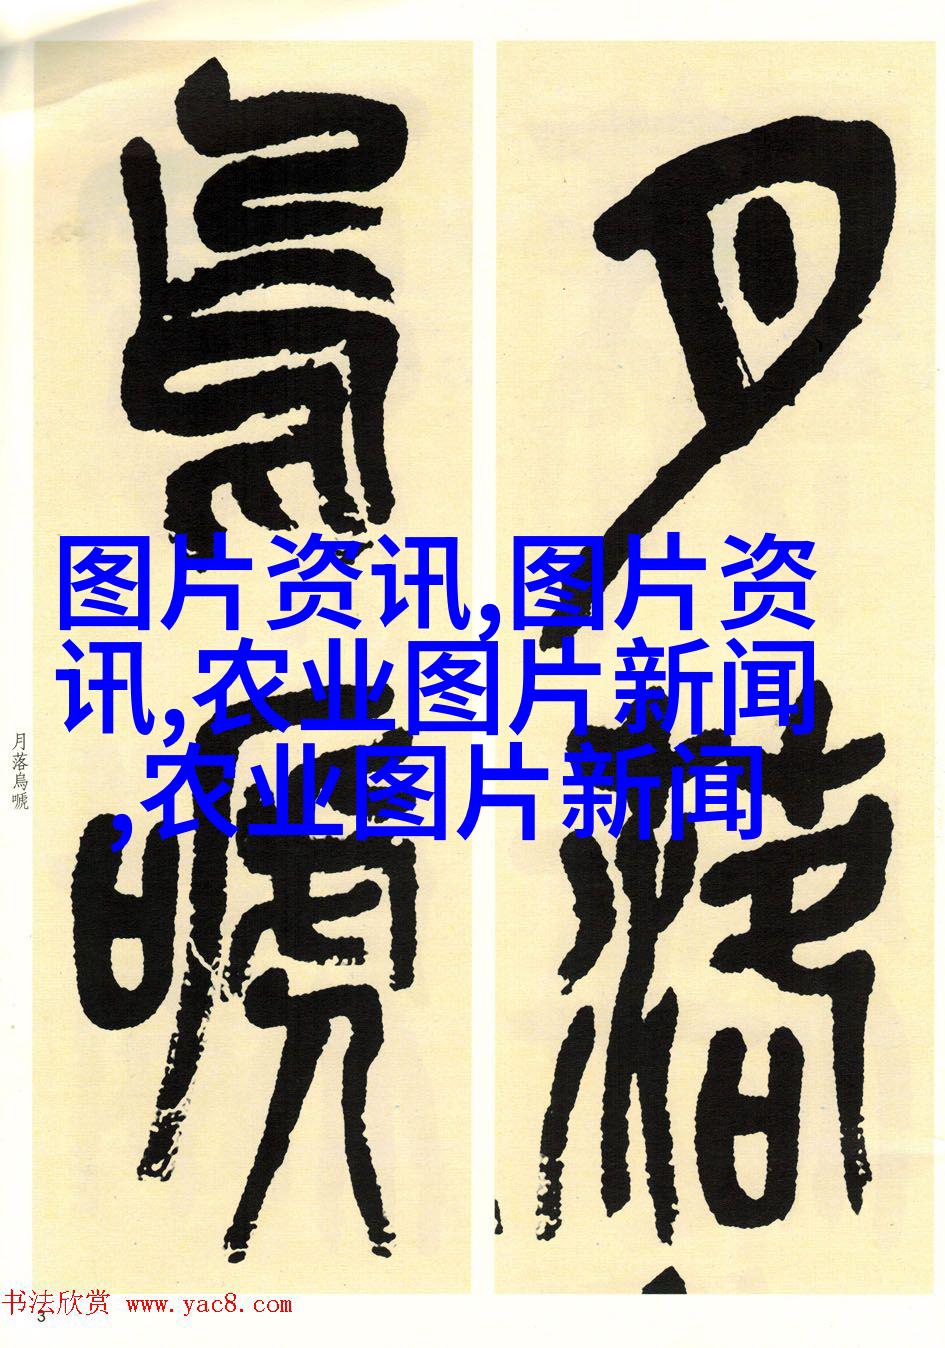 月落
烏嗁
图片资讯,图片资
讯,农业图片新闻
,农业图片新闻
月落烏嗁
书法欣赏 www.yac8.com
3